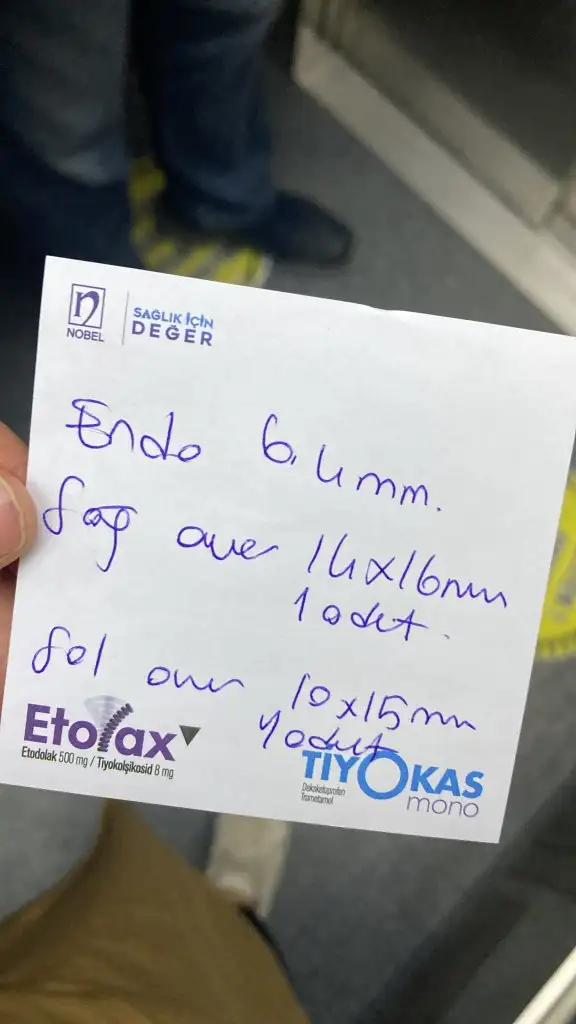 NOBEL
SAĞLIK İÇİN
DEĞER
Endo 6,4mm.
Sağ over 14x16mm
1 adet.
Sol over 10x15mm
1 adet
Etolax
Etodolak 500 mg / Tiyokolşikosid 8 mg
TIYOKAS
mono
Deksketoprofen
Trometamol